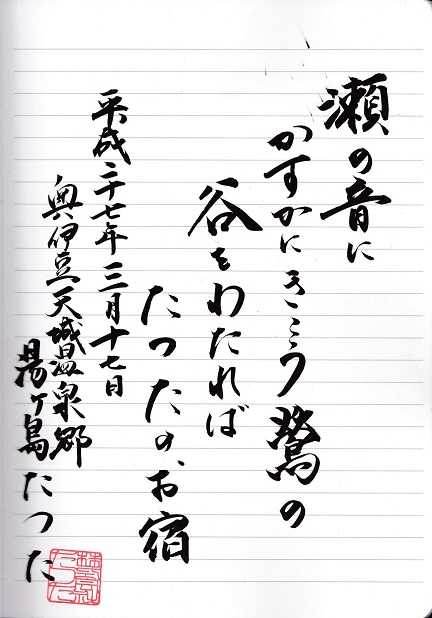 瀬の音に
かすかにきこう鶯の
谷をわたれば
たつたのお宿
平成二十七年三月十七日
奥伊豆天城温泉郷
湯ヶ島たつた